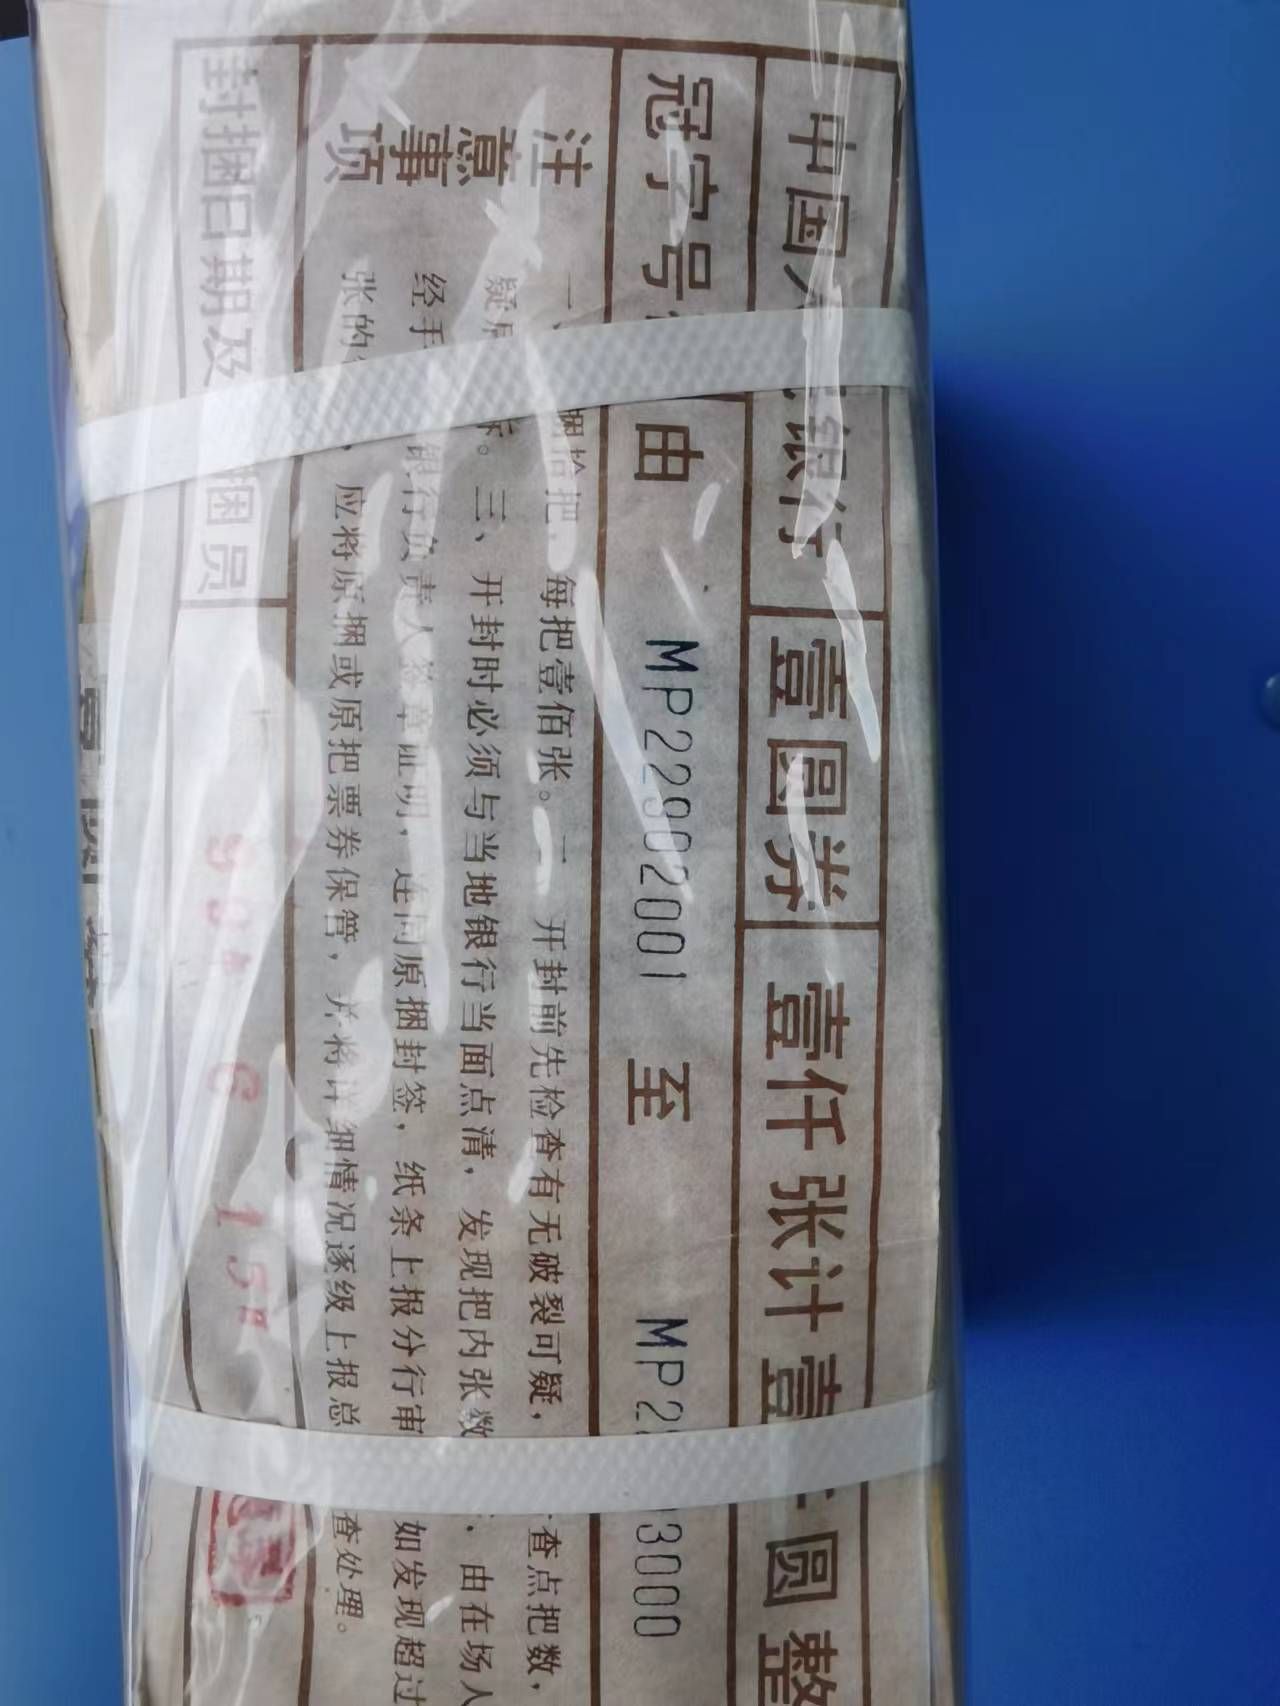 中国 银行 壹圆券 壹仟张计壹 圆整
冠字号 由 MP22902001 至 MP2 03000
注意事项
一、 捆拾把，每把壹佰张。二、开封前先检查有无破裂可疑， 查点把数，
疑 拆。三、开封时必须与当地银行当面点清，发现把内张数 由在场人
经手 银行负责人签章证明，连同原捆封签，纸条上报分行审 如发现超过
张的 应将原捆或原把票券保管，并将详细情况逐级上报总 查处理。
封捆日期及 捆员 6 15